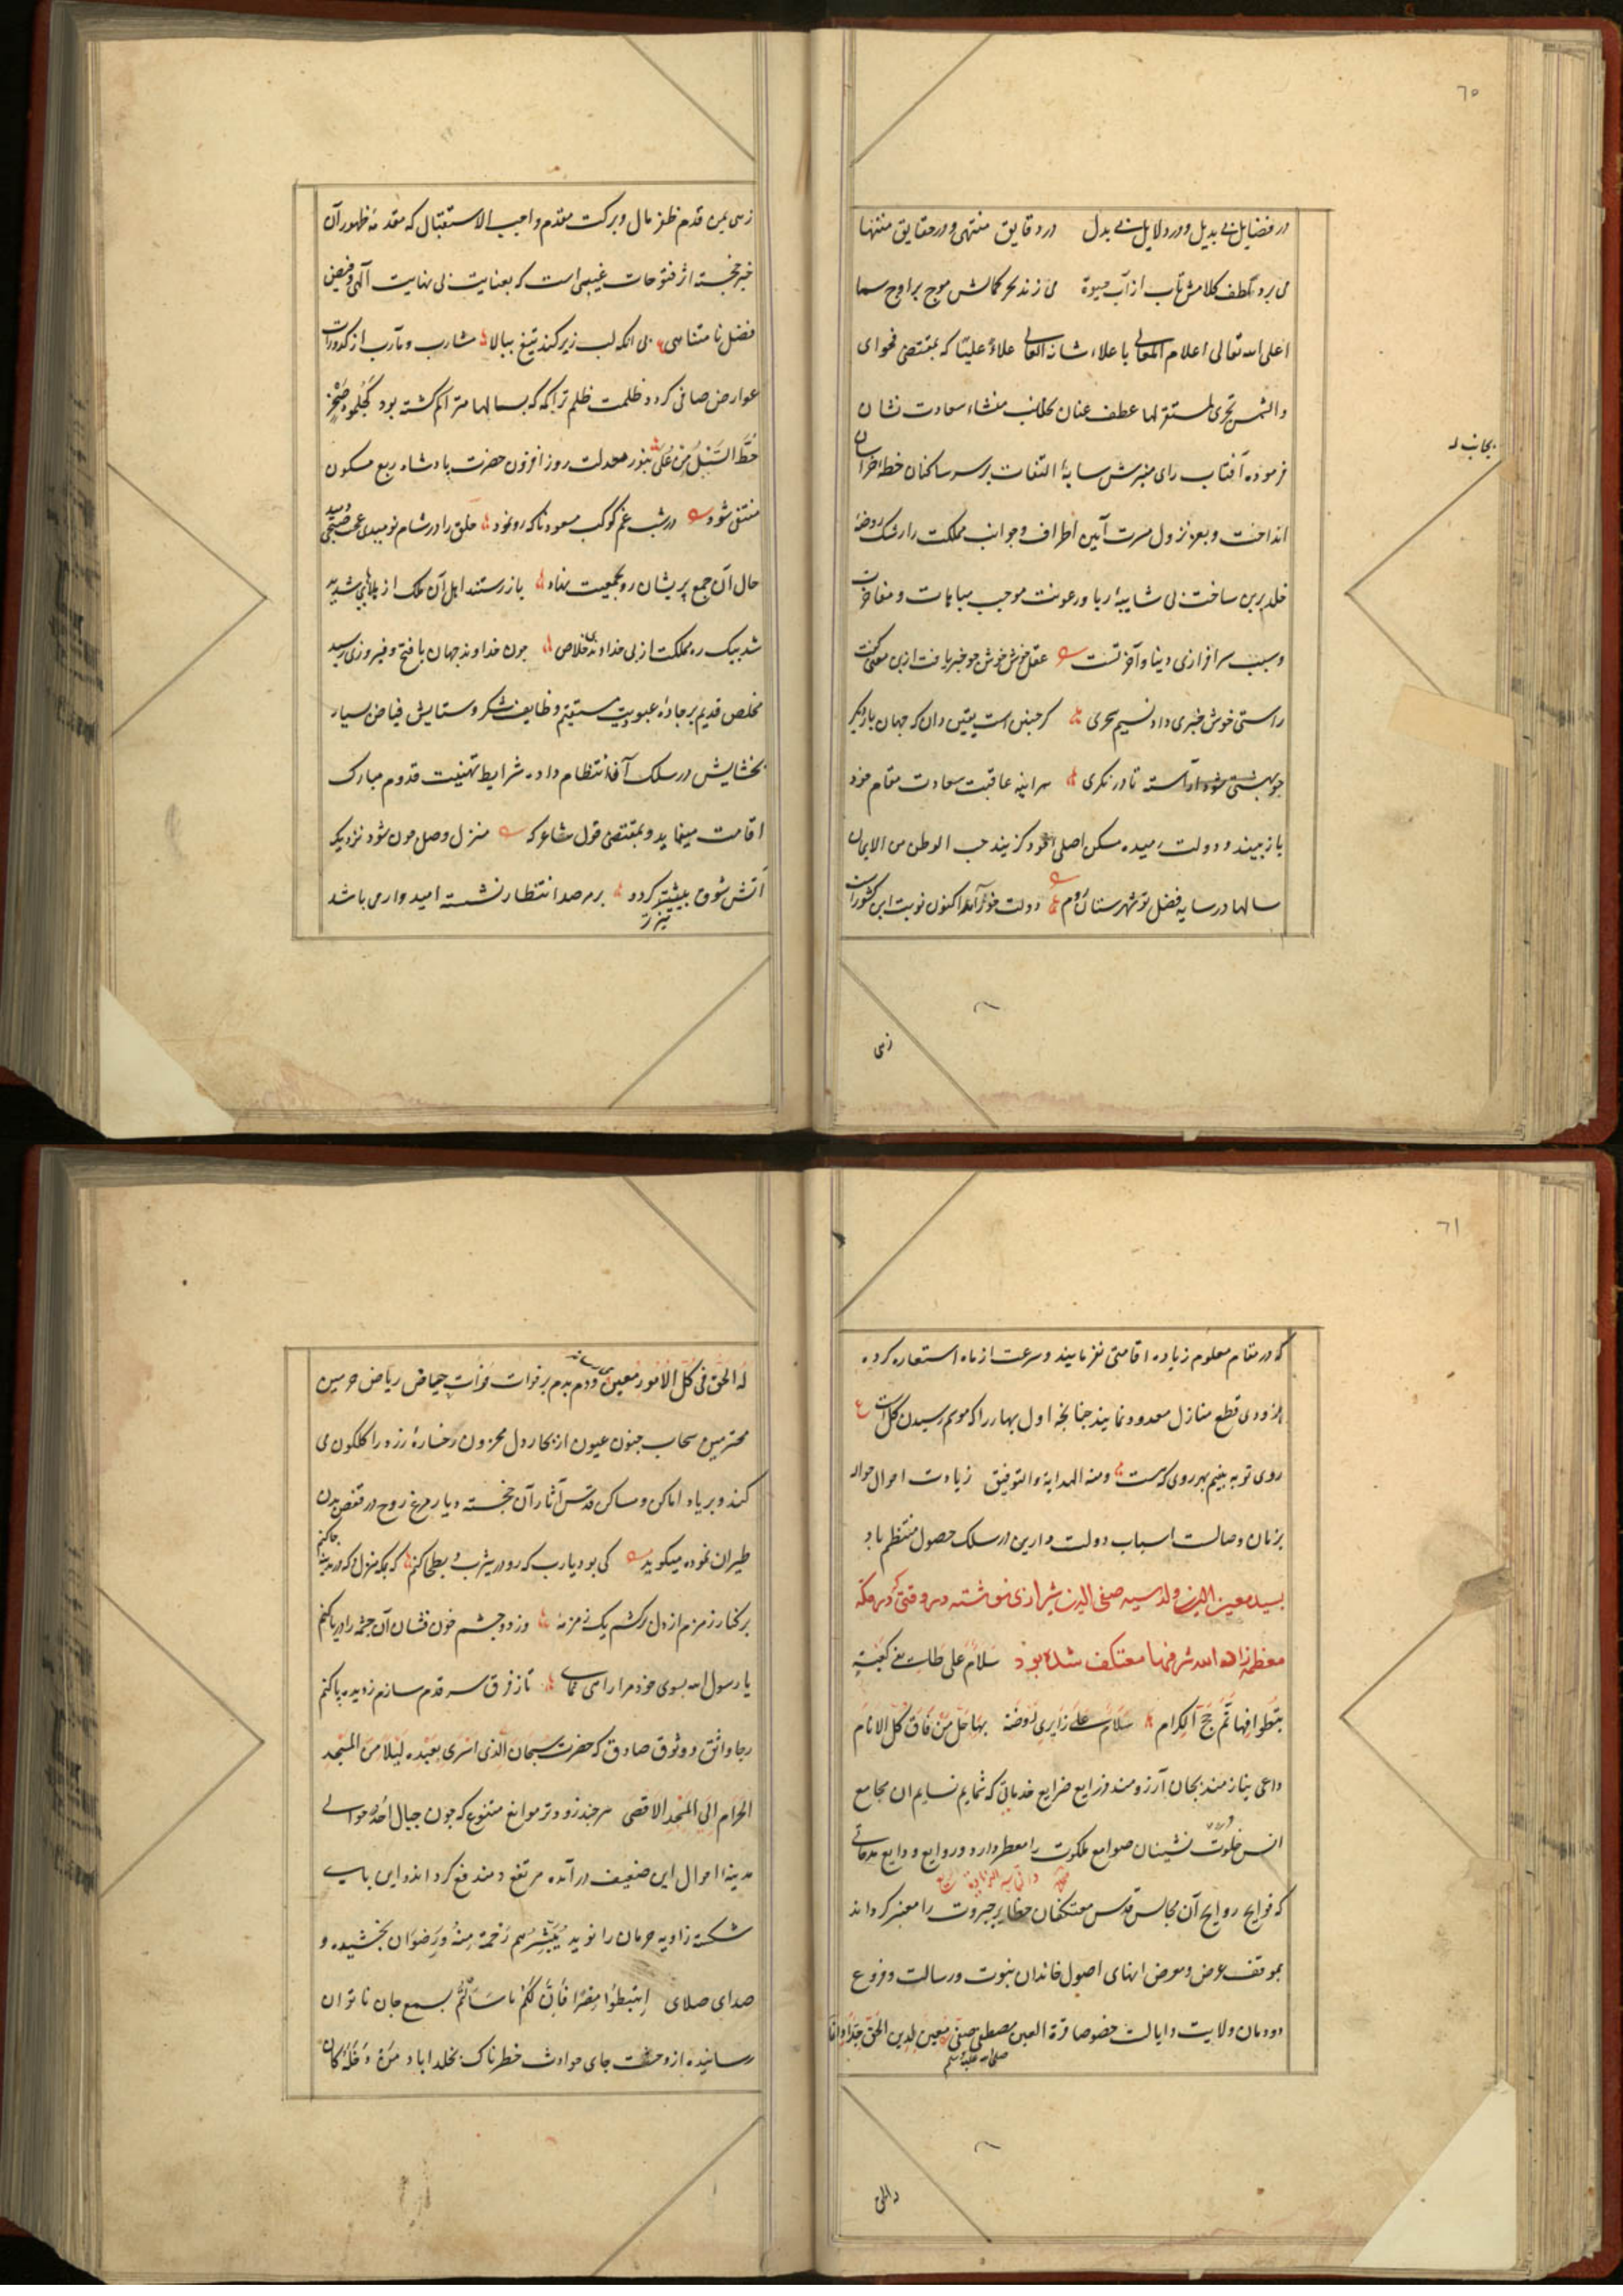 ٦٠
در فضایل بی بدیل و در دلایل بی بدل در دقایق منتهی و در حقایق منتها
می برد لطف کلامش آب از آب حیوة می زند بحر کمالش موج بر اوج سما
اعلی الله تعالی اعلام المعالی باعلاء شانه العالی علاءً علیّا که بمقتضی فحوای
والشمس تجری لمستقر لها عطف عنان بجانب منشاء سعادت نشان
بجانب
فرموده آفتاب رای منیرش سایهٔ التفات بر سر ساکنان خطهٔ خراسان
انداخت و بعز نزول مسرت آیین اطراف و جوانب مملکت را رشک روضهٔ
خلد برین ساخت بی شایبهٔ ریا و رعونت موجب مباهات و مفاخرت
و سبب سرافرازی دنیا و آخرتست عقل خوش خوش چو خبر یافت ازین معنی گفت
راستی خوش خبری داد نسیم سحری گر چنین است یقین دان که جهان بار دیگر
چو بهشتی شود آراسته تا در نگری هر آینه عاقبت سعادت مقام خود
باز بیند و دولت رمیده مسکن اصلی خود گزیند حب الوطن من الایمان
سالها در سایه فضل تو شهرستان روم دولت خوش آمد اکنون نوبت این کشور است
زهی
زهی یمن قدم ظفر مال و برکت مقدم واجب الاستقبال که مقدمهٔ ظهور آن
خبر خجسته اثر فتوحات غیبی است که بعنایت بی نهایت آلهی و فیض
فضل نامتناهی بی انکه لب زیر کند تیغ ببالا مشارب و مآرب از کدورات
عوارض صافی گردد و ظلمت ظلم تراکمه که بسالها متراکم گشته بود کجلمود صخر
حطه السیل من علی بنور معدلت روز افزون حضرت پادشاه ربع مسکون
منتفی شود در شب غم کوکب مسعود ناگه رو نمود خلق را در شام نومیدی عجب صبحی دمید
حال آن جمع پریشان رو بجمعیت نهاد باز رستند اهل آن ملک از بلاهای شدید
شد بیک ره مملکت از بی خداوندی خلاص چون خداوند جهان با فتح و فیروزی رسید
مخلص قدیم بر جادهٔ عبودیت مستقیم وظایف شکر و ستایش فیاض بسیار
بخشایش در سلک آفا انتظام داده شرایط تهنیت قدوم مبارک
اقامت مینماید و بمقتضی قول شاعر که منزل وصل چون شود نزدیک
آتش شوق بیشتر گردد بر مرصد انتظار نشسته امیدوار می باشد
تیزتر
٦١
که در مقام معلوم زیاده اقامتی نفرمایند و سرعت از ماه استعاره کرده
بزودی قطع منازل معدود نمایند چنانچه اول بهار را که موسم رسیدن گل است ع
روی تو به بینیم بهر روی که هست ومنه الهدایة والتوفیق زیادت احوال حواله
بزمان وصالست اسباب دولت دارین در سلک حصول منتظم باد
بسید معین الدین ولد سید صفی الدین شیرازی نوشته در وقتی که در مکه
معظمه زاد الله شرفها معتکف شده بود سلام علی طایفی کعبة
بتطوافها تم حج الکرام سلام علی زایری روضة بها حل من فاق کل الانام
داعی نیازمند بجان آرزومند ذرایع ضرایع خدماتی که شمایم نسایم ان مجامع
انس خلوت نشینان صوامع ملکوت را معطر دارد و روایع ودایع مدحاتی
که فوایح روایح آن مجالس قدس معتکفان حظایر جبروت را معنبر گرداند
بموقف عرض و معرض انهای اصول خاندان نبوت و رسالت و فروع
دودمان ولایت و ایالت خصوصا قرة العین مصطفی صفی معین لدین الحق جدا و انما
صلی الله علیه وسلم
له الحق فی کل الامور معین می رساند و دم بدم بر فوات فرات حیاض ریاض حرمین
محترمین سحاب جفون عیون از بخار دل محزون رخسارهٔ زرد را گلگون می
کند و بر یاد اماکن و مساکن قدس آثار آن خجسته دیار مرغ روح در قفص بدن
طیران نموده میگوید کی بود یارب که رو در یثرب و بطحا کنم گه بمکه منزل و گه در مدینه جا کنم
بر کنار زمزم از دل برکشم یک زمزمه وز دو چشم خون فشان آن چشمه را دریا کنم
یا رسول الله بسوی خود مرا راهی نمای تا ز فرق سر قدم سازم ز دیده پا کنم
رجا واثق و وثوق صادق که حضرت سبحان الذی اسری بعبده لیلا من المسجد
الحرام الی المسجد الاقصی هر چند زودتر موانع متنوع که چون جبال احد حوالی
مدینه احوال این ضعیف در آمده مرتفع و مندفع گرداند و این پای
شکسته زاویه حرمان را نوید یبشرهم رحمة منه ورضوان بخشیده و
صدای صلای اهبطوا مصرا فان لکم ما سألتم بسمع جان ناتوان
رسانیده از وحشت جای حوادث خطرناک بخلداباد من دخله کان